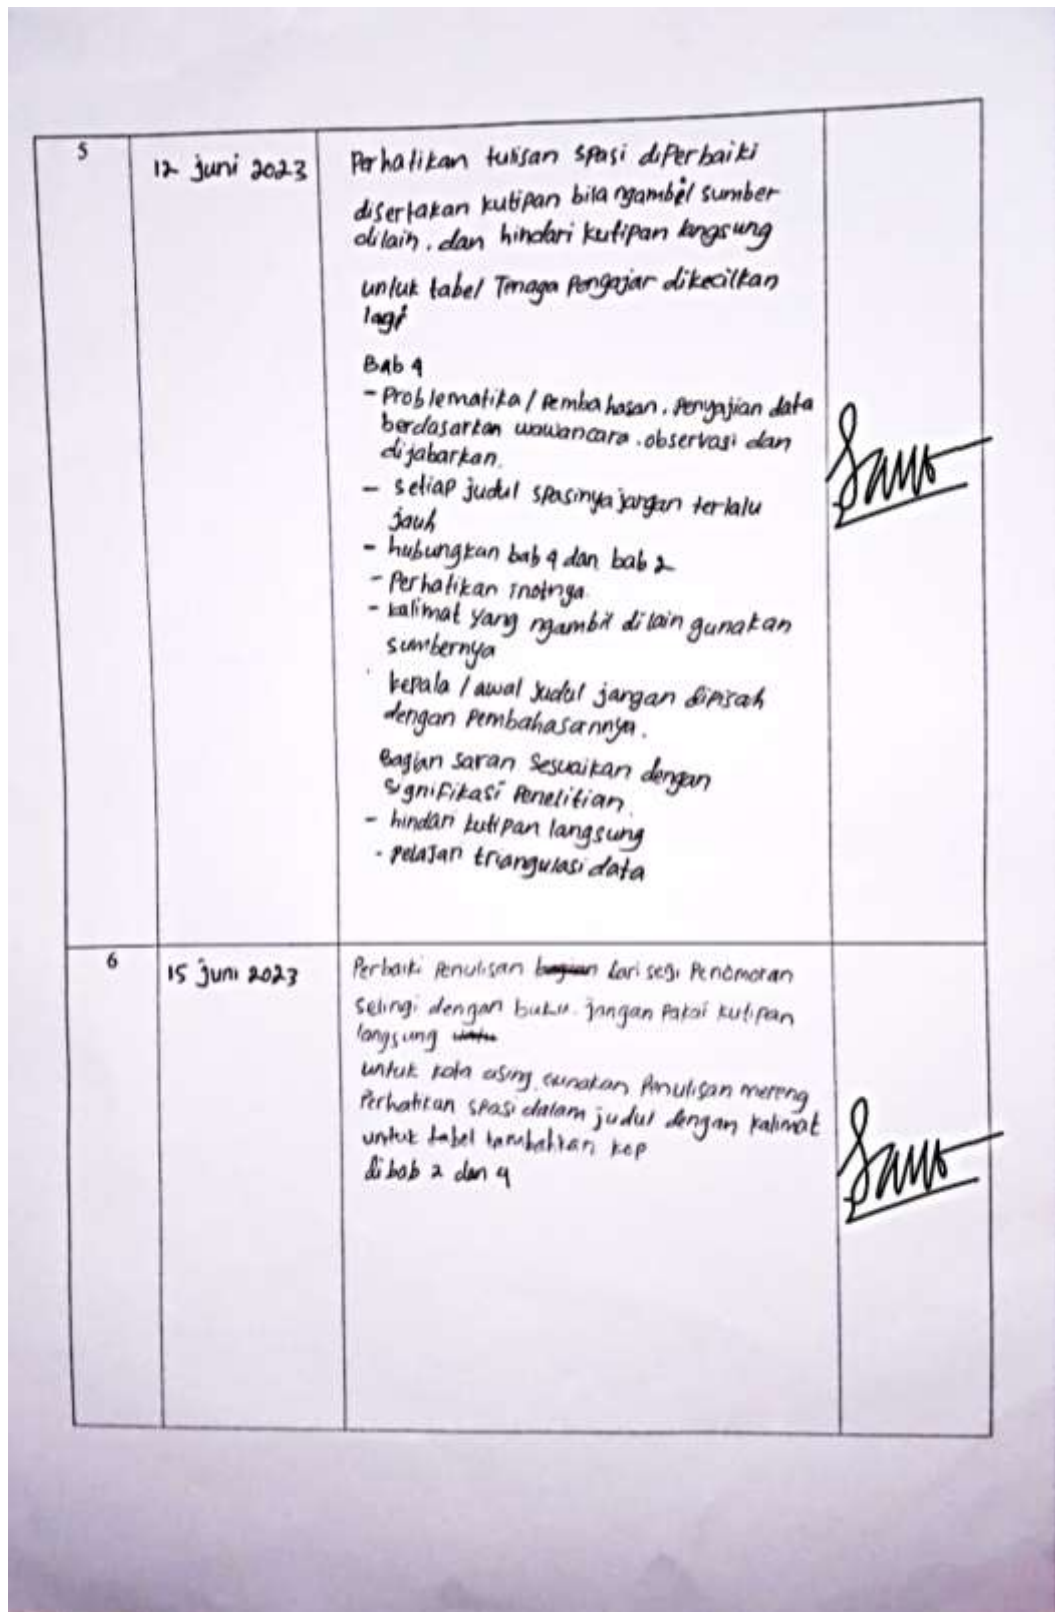 5
12 juni 2023
Perhatikan tulisan spasi diperbaiki
disertakan kutipan bila ngambil sumber
dilain. dan hindari kutipan langsung
untuk tabel Tenaga Pengajar dikecilkan
lagi
Bab 4
- Problematika / Pembahasan. Penyajian data
berdasarkan wawancara. observasi dan
dijabarkan.
- setiap judul spasinya jangan terlalu
jauh
- hubungkan bab 4 dan bab 2
- Perhatikan
- kalimat yang ngambil di lain gunakan
sumbernya
kepala / awal judul jangan dipisah
dengan Pembahasannya.
Bagian saran sesuaikan dengan
signifikasi Penelitian.
- hindari kutipan langsung
- pelajari triangulasi data
6
15 juni 2023
Perbaiki Penulisan bagian dari segi Penomoran
Selingi dengan buku. jangan Pakai kutipan
langsung
untuk kata asing gunakan Penulisan mereng
Perhatikan spasi dalam judul dengan kalimat
untuk tabel tambahkan kop
di bab 2 dan 4